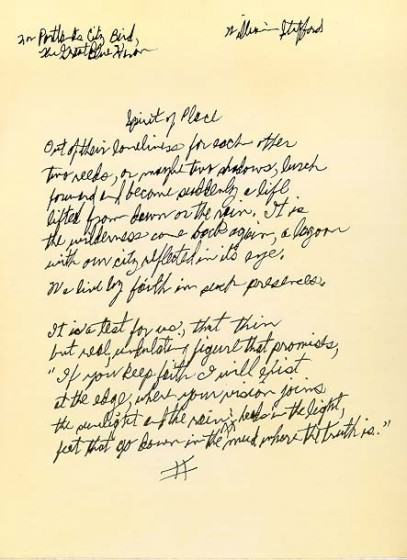 For Portland's City Bird,
the Great Blue Heron
William Stafford
Spirit of Place
Out of their loneliness for each other
two reeds, or maybe two shadows, lurch
forward and become suddenly a life
lifted from dawn or the rain. It is
the wilderness come back again, a lagoon
with our city reflected in its eye.
We live by faith in such presences.
It is a test for us, that thin
but real, undulating figure that promises,
"If you keep faith I will exist
at the edge, where your vision joins
the sunlight and the rain: heads in the light,
feet that go down in the mud where the truth is."